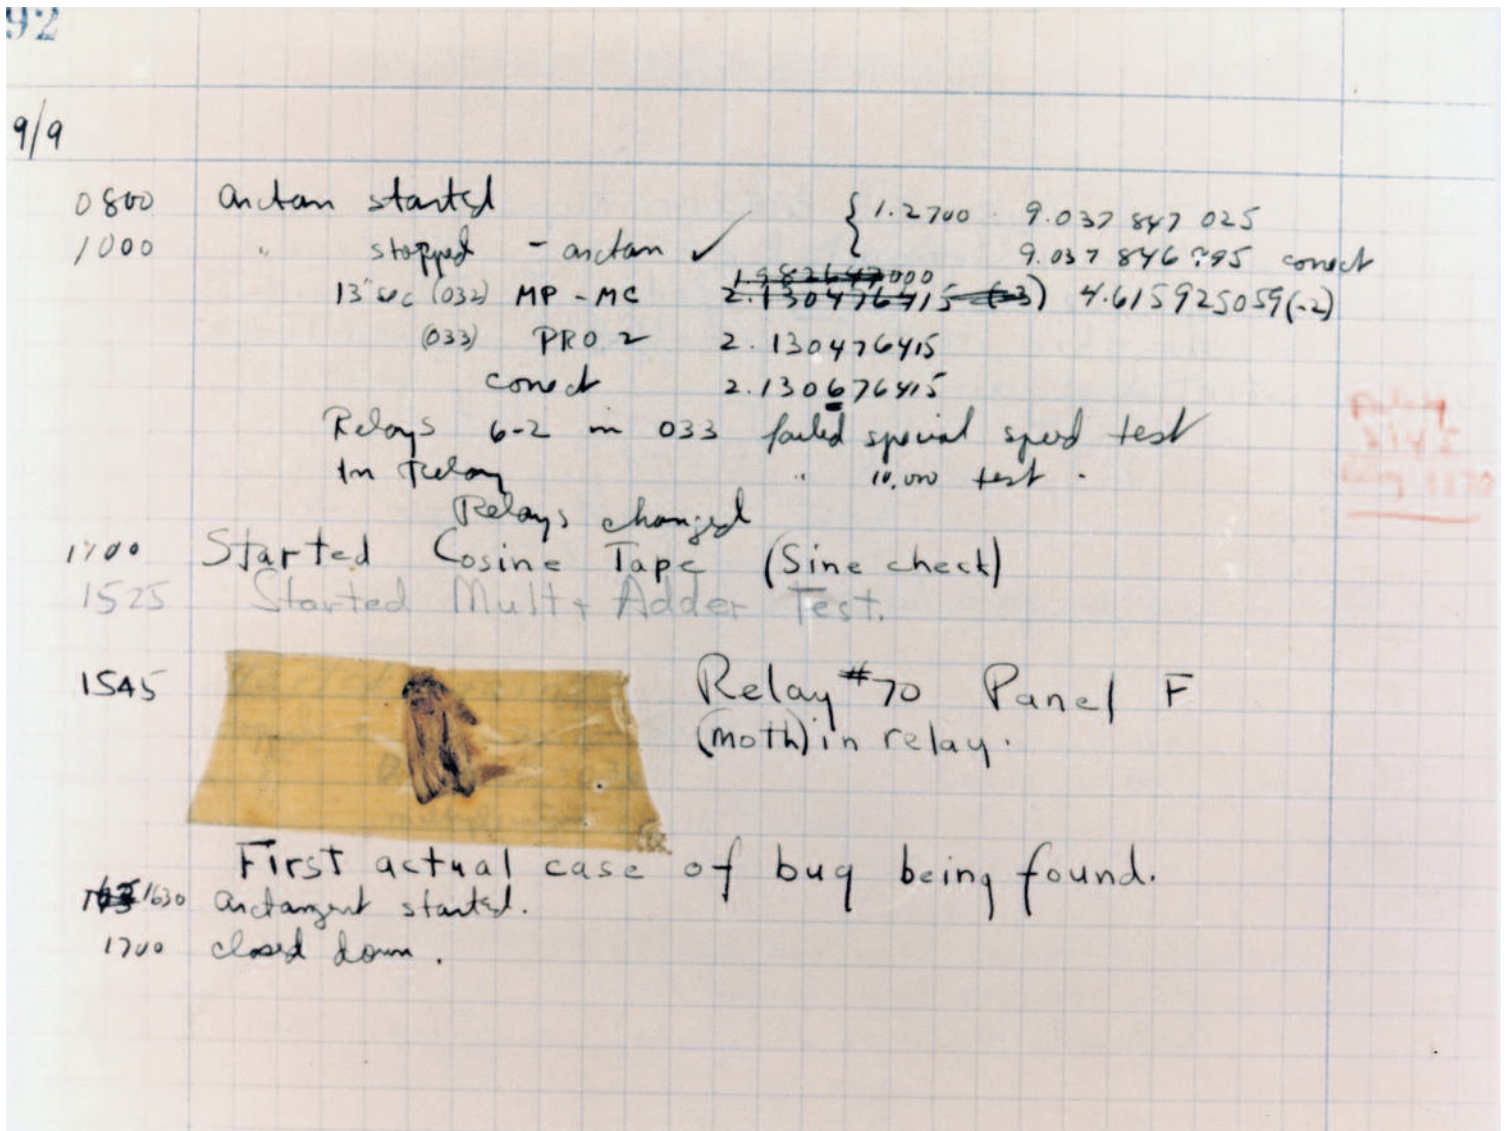 92
9/9
0800 arctan started { 1.2700 9.037 847 025
1000 " stopped - arctan ✓ { 9.037 846 995 correct
13" sec (032) MP - MC 1.982647000 2.130476415 (-3) 4.615925059(-2)
(033) PRO 2 2.130476415
correct 2.130676415
Relays 6-2 in 033 failed special speed test
In Relay " 10,000 test .
Relays changed
1700 Started Cosine Tape (Sine check)
1525 Started Mult + Adder Test.
1545 Relay #70 Panel F
(moth) in relay.
First actual case of bug being found.
1630 arctangent started.
1700 closed down.